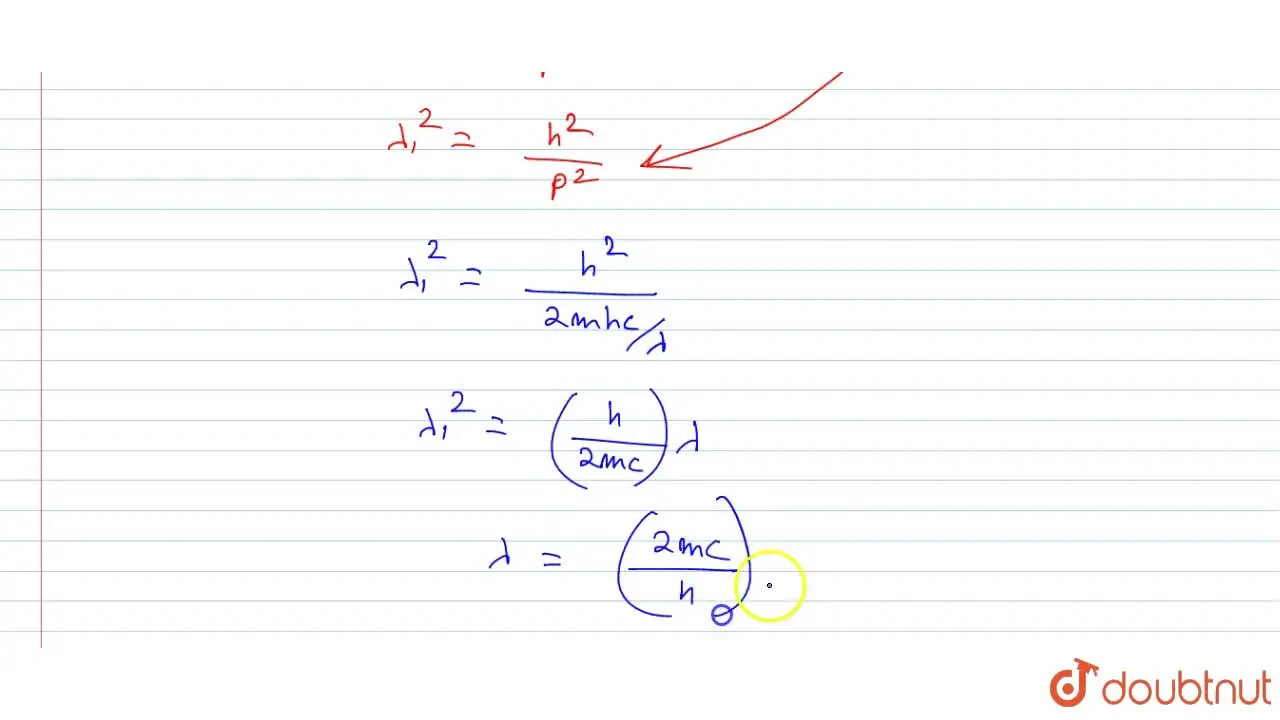 λ₁² = h²/p²
λ₁² = h²/(2mhc/λ)
λ₁² = (h/2mc) λ
λ = (2mc/h)
doubtnut